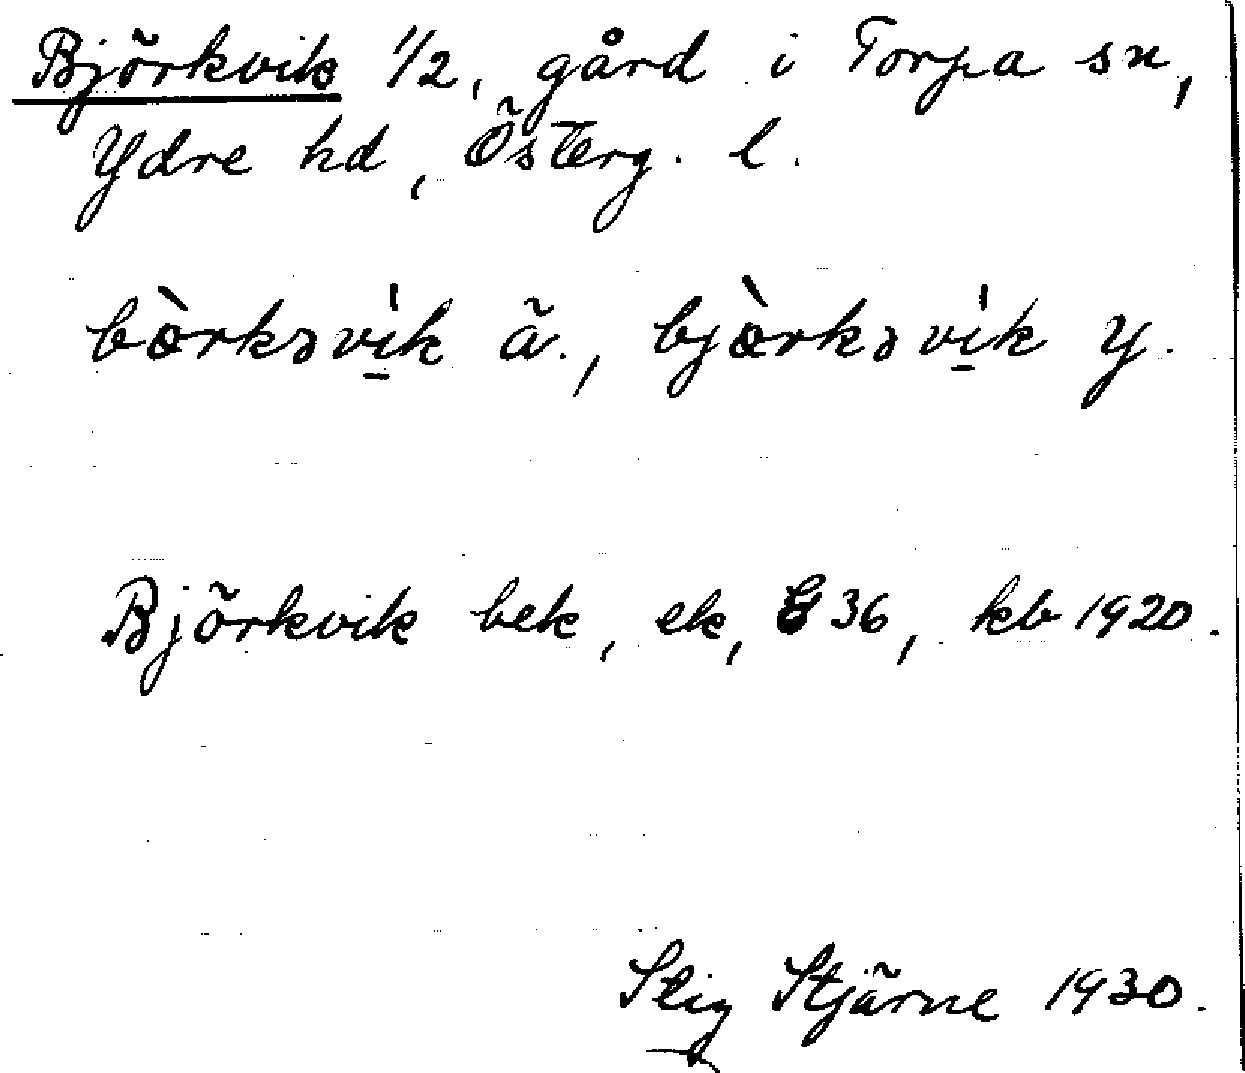 Björkvik 1/2, gård i Torpa sn,
Ydre hd, Österg. l.
bœ̀rkɜvi̠k ä., bjœ̀rkɜvi̠k y.
Björkvik bek, ek, G 36, kb 1920.
Stig Stjärne 1930.